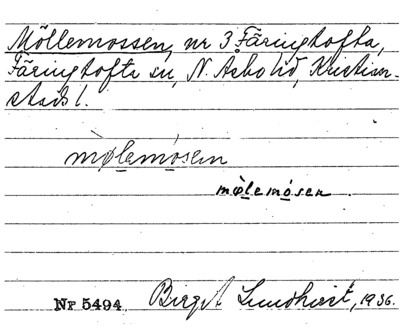 Möllemossen, nr 3 Färingtofta,
Färingtofta sn, N. Åsbo hd, Kristian-
stads l.
mølemósen
mølemósen.
Nr 5494 Birgit Lundkvist, 1936.